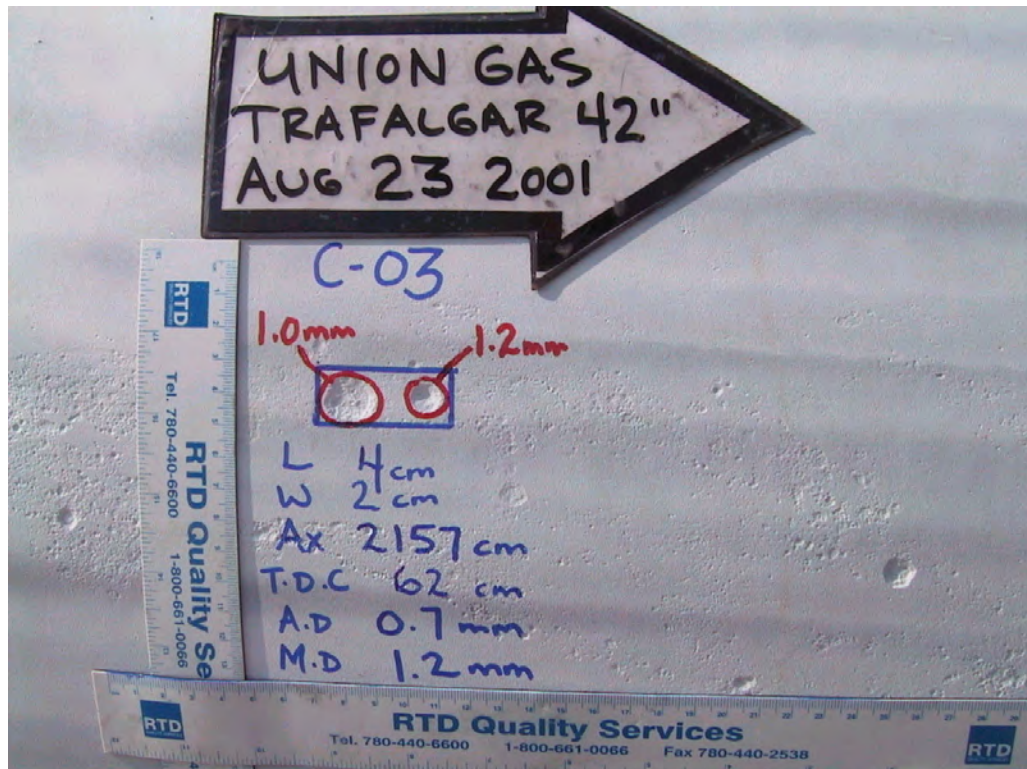 UNION GAS
TRAFALGAR 42"
AUG 23 2001
C-03
1.0mm
1.2mm
L 4cm
W 2 cm
Ax 2157 cm
T.D.C 62 cm
A.D 0.7 mm
M.D 1.2 mm
RTD
RTD Quality Se
Tel. 780-440-6600 1-800-661-0066
RTD
RTD Quality Services
Tel. 780-440-6600 1-800-661-0066 Fax 780-440-2538
RTD